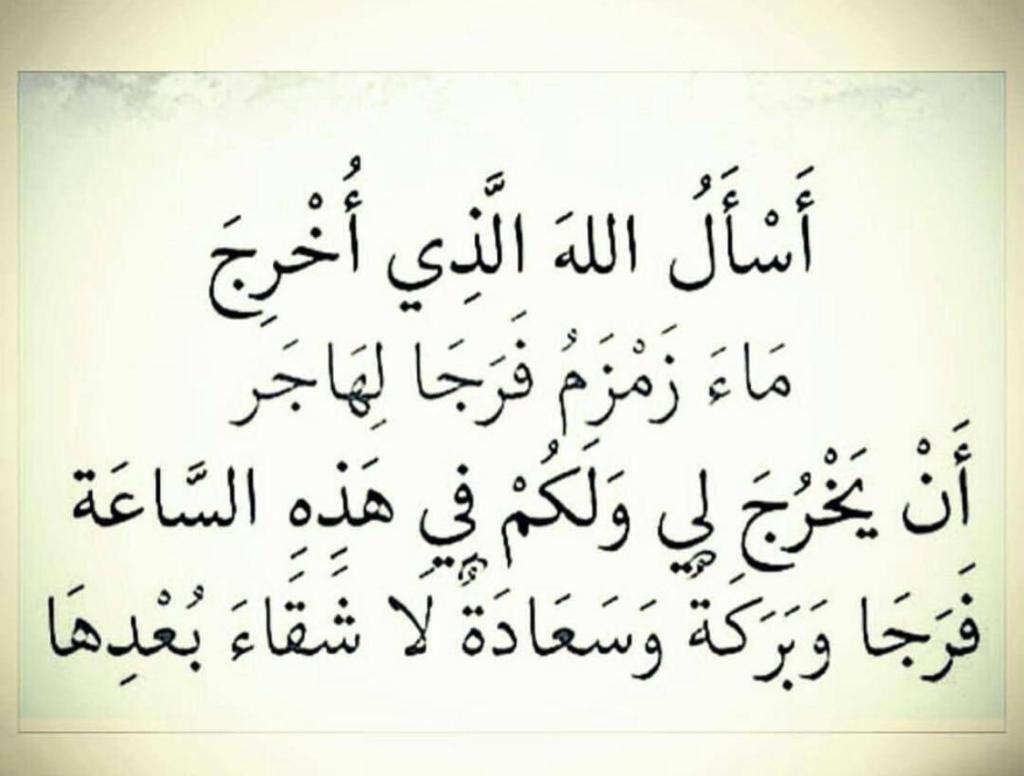 أَسْأَلُ اللهَ الَّذِي أُخْرِجَ
مَاءَ زَمْزَمُ فَرَجَا لِهَاجَر
أَنْ يَخْرُجَ لِي وَلَكُمْ فِي هَذِهِ السَّاعَة
فَرَجَا وَبَرَكَةٌ وَسَعَادَةٌ لَا شَقَاءَ بُعْدِهَا